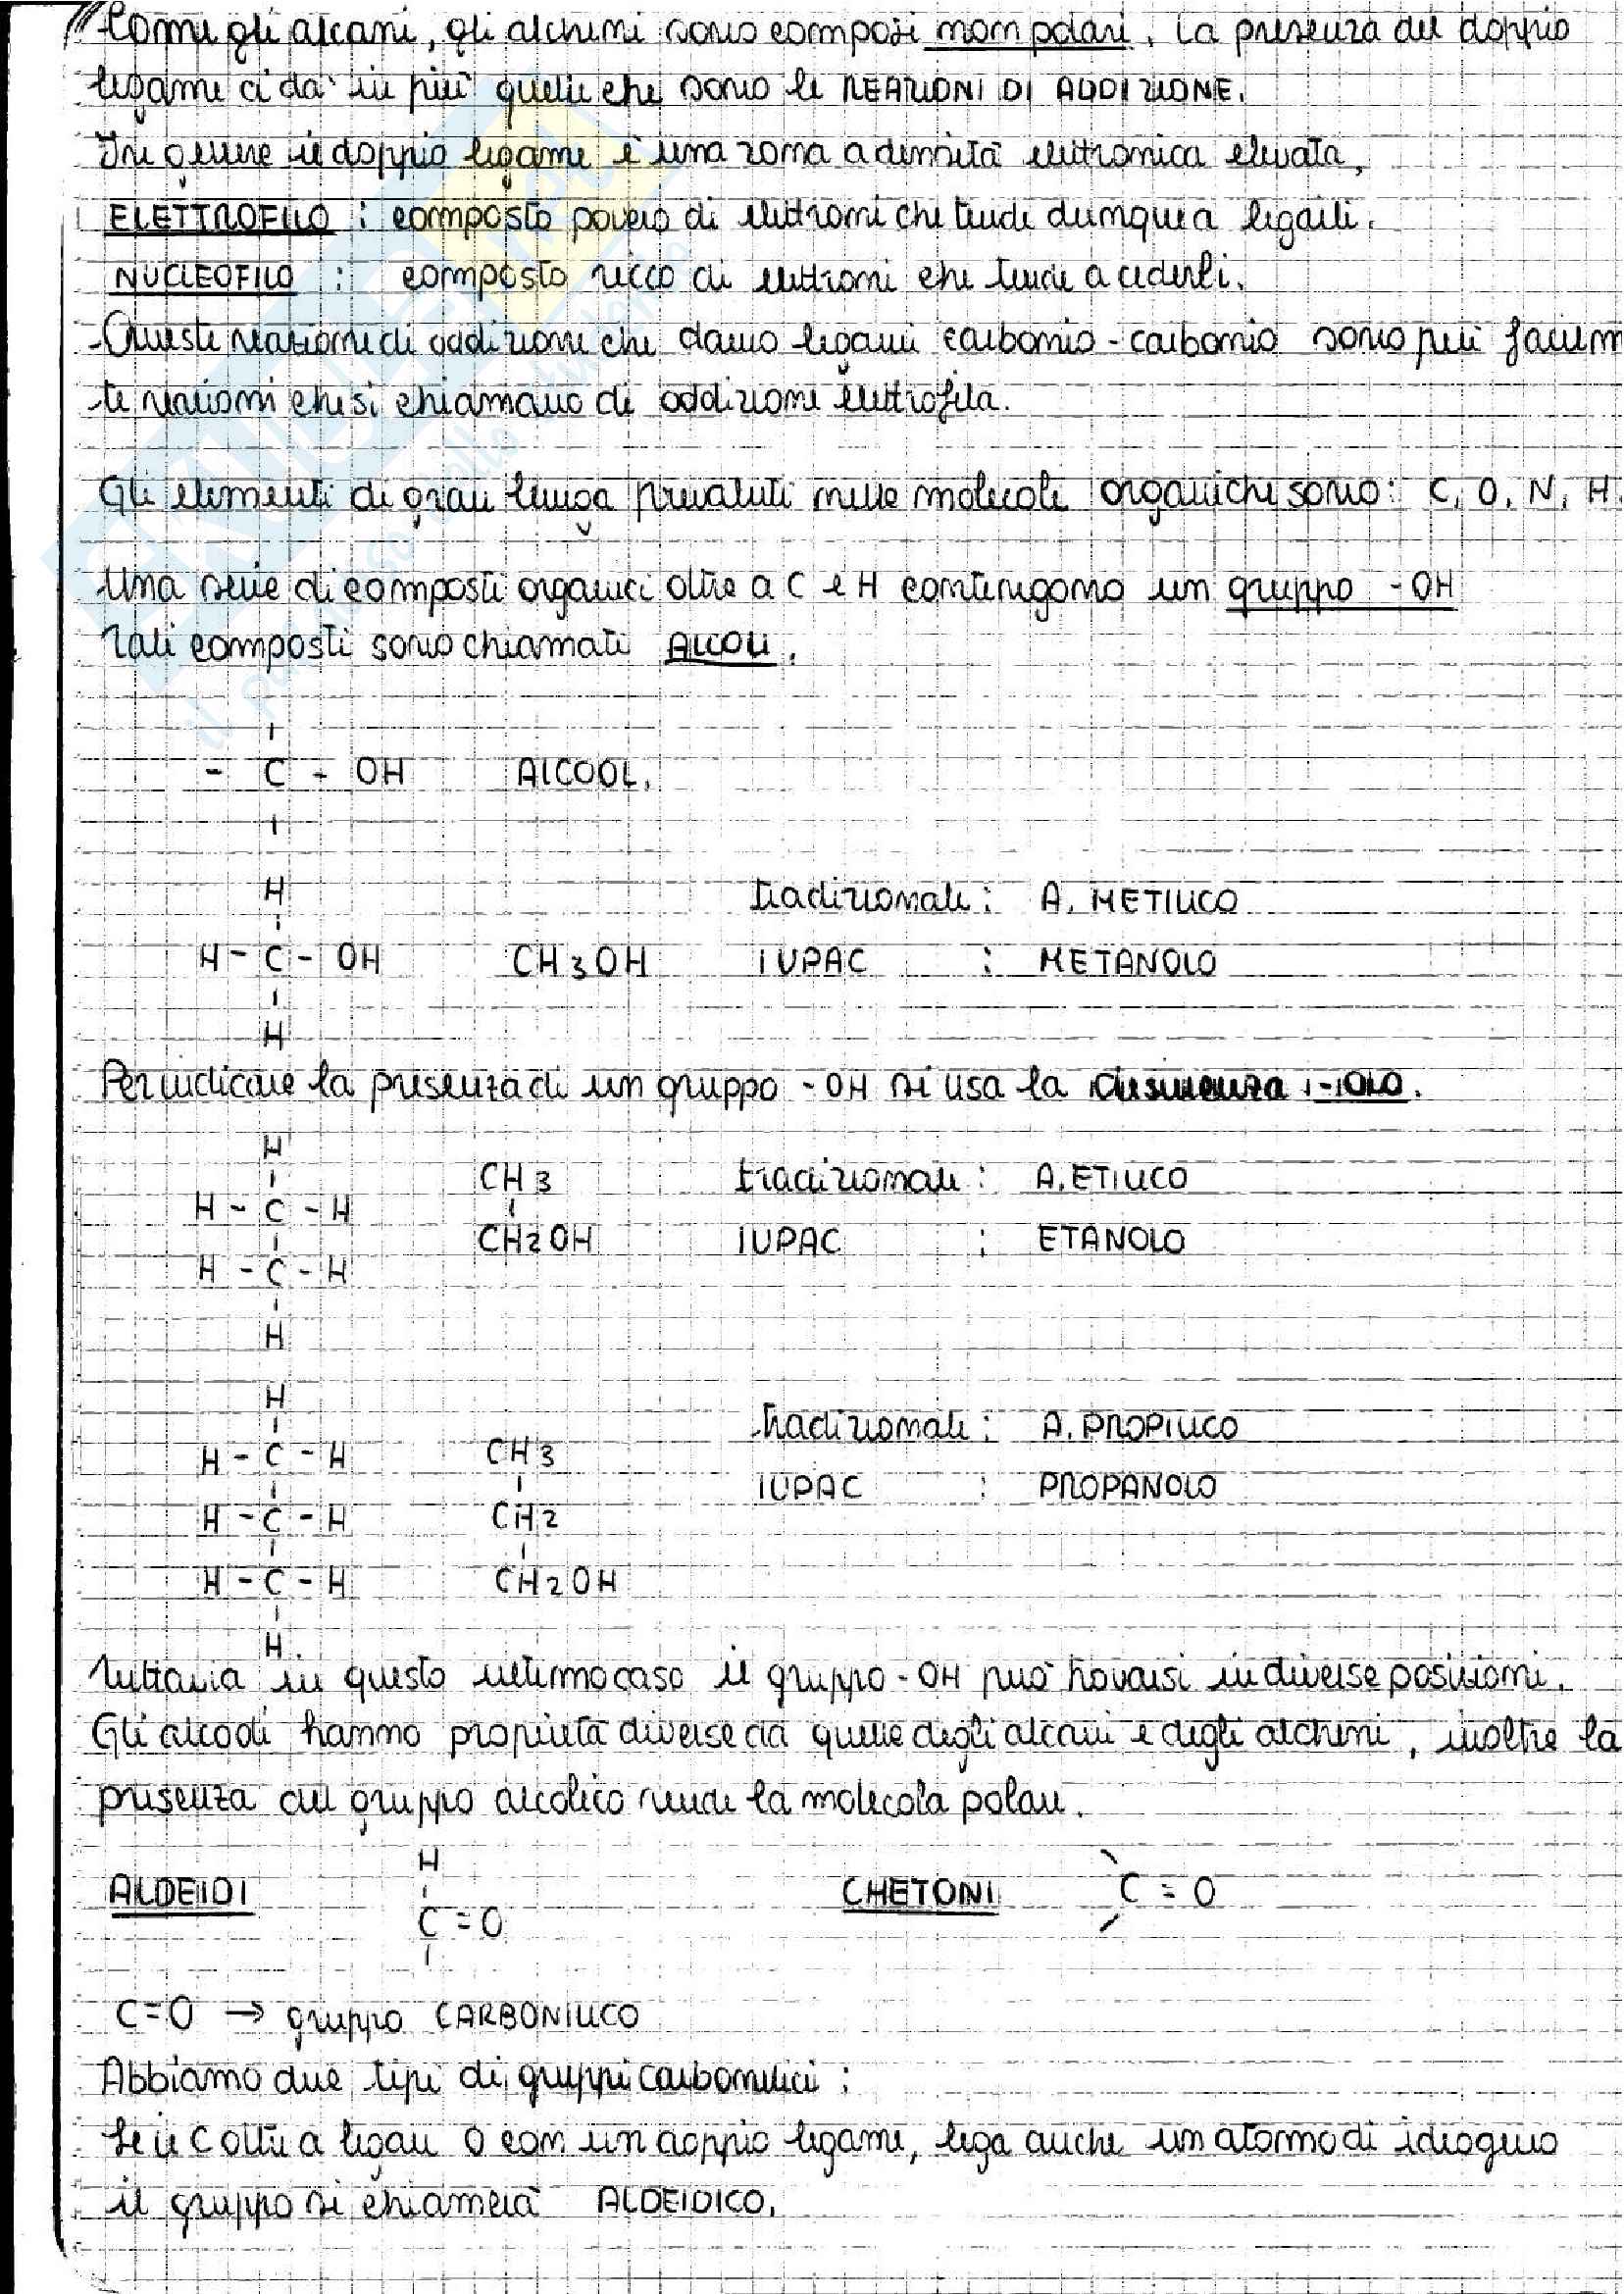 Come gli alcani, gli alcheni sono composi non polari. La presenza del doppio
legame ci da' in più quelle che sono le REAZIONI DI ADDIZIONE.
In genere il doppio legame è una zona a densità elettronica elevata,
ELETTROFILO : composto povero di elettroni che tende dunque a legarli.
NUCLEOFILO : composto ricco di elettroni che tende a cederli.
Queste reazioni di addizione che danno legami carbonio-carbonio sono più facilmen
te reazioni che si chiamano di addizione elettrofila.
Gli elementi di gran lunga prevaluti nelle molecole organiche sono: C, O, N, H.
Una serie di composti organici oltre a C e H contengono un gruppo -OH
Tali composti sono chiamati ALCOLI.
- C - OH ALCOOL.
H
tradizionale: A. METILICO
H - C - OH CH3OH IUPAC : METANOLO
H
Per indicare la presenza di un gruppo -OH si usa la desinenza -OLO.
H
CH3 tradizionale: A. ETILICO
H - C - H
CH2OH IUPAC : ETANOLO
H - C - H
H
H
tradizionale: A. PROPILICO
H - C - H CH3
IUPAC : PROPANOLO
H - C - H CH2
H - C - H CH2OH
H
Tuttavia in questo ultimo caso il gruppo -OH può trovarsi in diverse posizioni.
Gli alcooli hanno proprietà diverse da quelle degli alcani e degli alcheni, inoltre la
presenza del gruppo alcolico rende la molecola polare.
H
ALDEIDI CHETONI C = O
C = O
C=O → gruppo CARBONILICO
Abbiamo due tipi di gruppi carbonilici :
Se il C oltre a legare O con un doppio legame, lega anche un atomo di idrogeno
il gruppo si chiamerà ALDEIDICO.